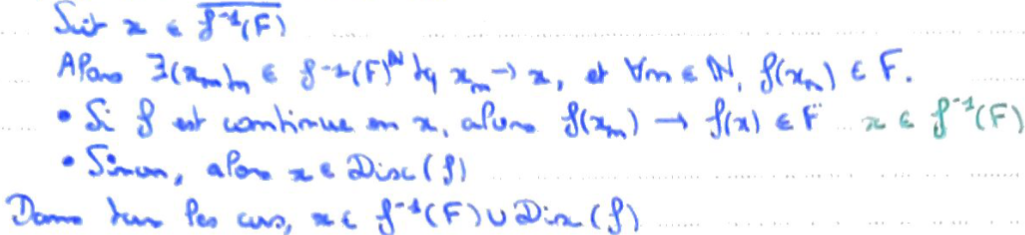 Soit x ∈ \overline{f⁻¹(F)}
Alors ∃(xₙ)ₙ ∈ f⁻¹(F)^ℕ tq xₙ → x, et ∀n ∈ ℕ, f(xₙ) ∈ F.
• Si f est continue en x, alors f(xₙ) → f(x) ∈ F x ∈ f⁻¹(F)
• Sinon, alors x ∈ Disc(f)
Dans tous les cas, x ∈ f⁻¹(F) ∪ Disc(f)